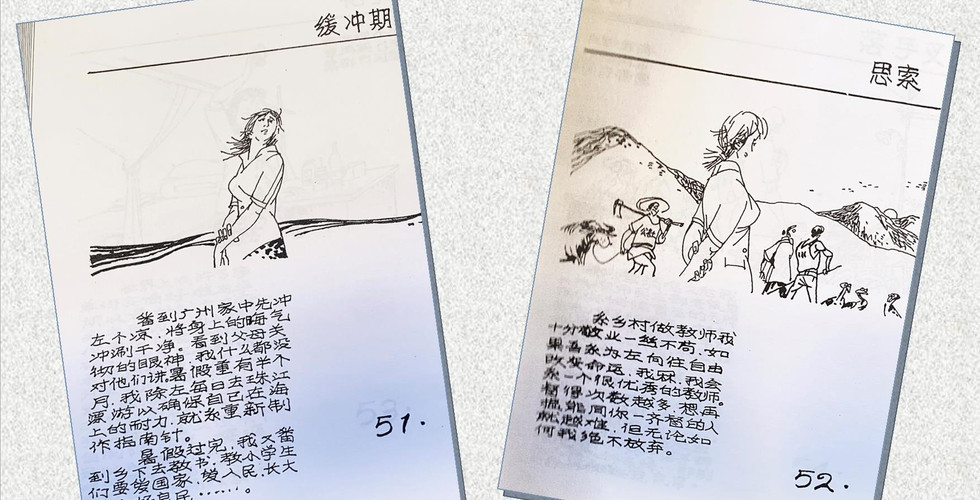 缓冲期
番到广州家中先冲
左个凉，将身上的晦气
冲涮干净。看到父母关
切的眼神，我什么都没
对他们讲。暑假重有半个
月，我除左每日去珠江
游以确保自己在海
上的耐力，就系重新制
作指南针。
暑假过完，我又番
到乡下去教书，教小学生
们要爱国家，爱人民，长大
思索
系乡村做教师我
十分敬业一丝不苟，如
果吾系为左向往自由
改变命运，我冧，我会
系一个很优秀的教师。
督得次数越多，想再
搵能同你一齐督的人
就越难，但无论如
何我绝不放弃。
51.
52.